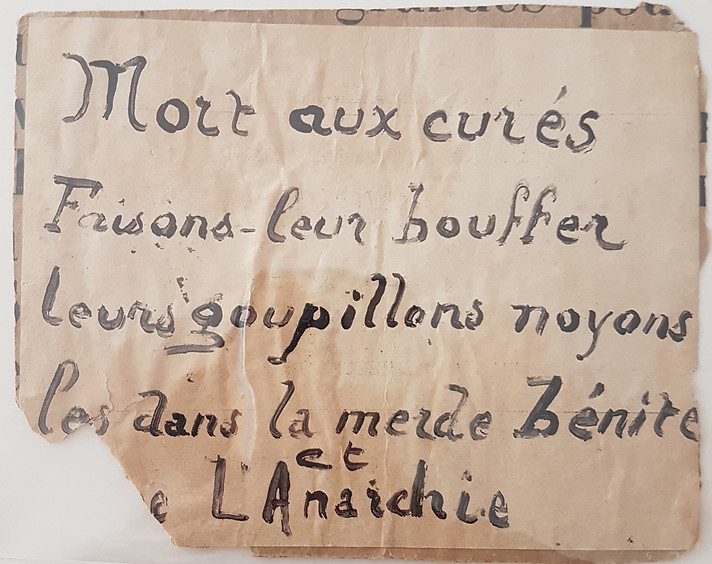 Mort aux curés
Faisons-leur bouffer
leurs goupillons noyons
les dans la merde bénite
et
L'Anarchie